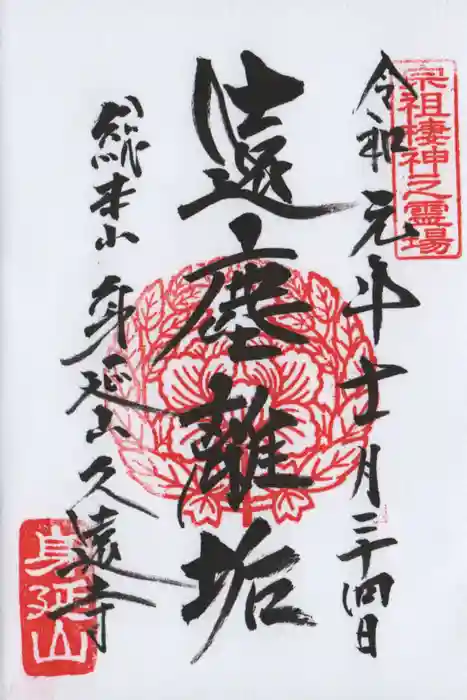 宗祖棲神之霊場
令和元年十一月二十四日
遠塵離垢
総本山 身延山 久遠寺
身延山